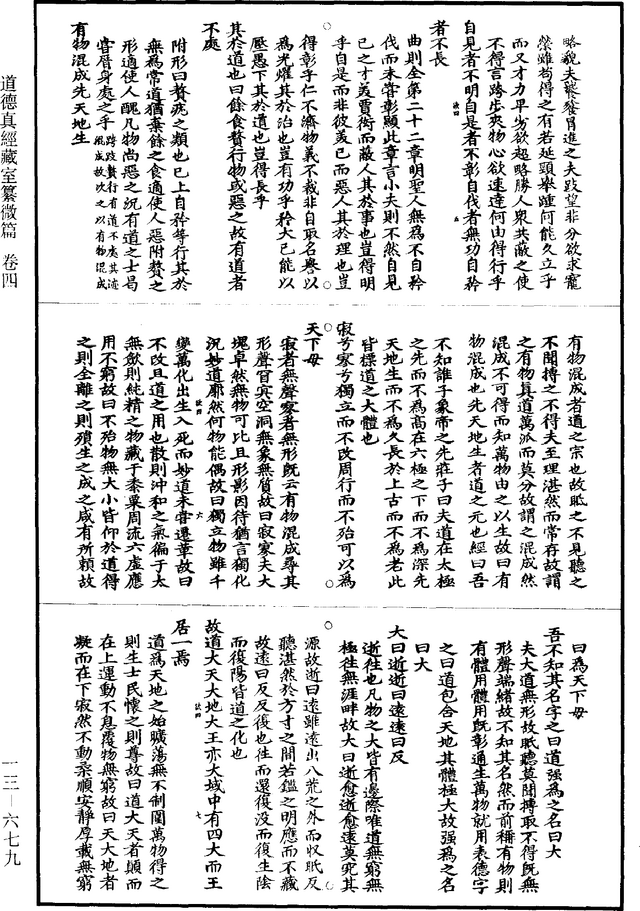 道德真經藏室纂微篇　卷四
一三—六七九
略貌夫襲發冒進之夫跂望非分欲求寵
榮雖苟得之有若延頸舉踵何能久立乎
而又才力卑劣欲超略勝人衆共蔽之使
不得言跨步夾物心欲速達何由得行乎
自見者不明自是者不彰自伐者無功自矜
者不長
曲則全第二十二章明聖人無為不自矜
伐而未嘗彰顯此章言小夫則不然自見
已之才美賈衒而蔽人其於事也豈得明
乎自是而非彼美已而惡人其於理也豈
得彰乎仁不濟物義不裁非自取名譽以
為光燿其於治也豈有功乎矜大已能以
壓愚下其於道也豈得長乎
其於道也曰餘食贅行物或惡之故有道者
不處
附形曰贅疣之類也已上自矜等行其於
無為常道猶棄餘之食適使人惡附贅之
形適使人醜凡物尚惡之況有道之士曷
嘗厝身處之乎跨跂贅行有道不處其迹
混成故次之以有物混成
有物混成先天地生
有物混成者道之宗也故眂之不見聽之
不聞搏之不得夫至理湛然而常存故謂
之有物真道萬派而莫分故謂之混成然
混成不可得而知萬物由之以生故曰有
物混成也先天地生者道之元也經曰吾
不知誰子象帝之先莊子曰夫道在太極
之先而不為高在六極之下而不為深先
天地生而不為久長於上古而不為老此
皆標道之大體也
寂兮寥兮獨立而不改周行而不殆可以為
天下母
寂者無聲寥者無形旣云有物混成尋其
形聲窅冥空洞無象無質故曰寂寥夫大
塊卓然無物可比且形影因待猶言獨化
況妙道廓然何物能偶故曰獨立物雖千
變萬化出生入死而妙道未嘗遷革故曰
不改且道之用也散則沖和之氣徧于太
無斂則純精之物藏于黍粟周流六虛應
用不窮故曰不殆物無大小皆仰於道得
之則全離之則殞生之成之咸有所賴故
曰為天下母
吾不知其名字之曰道强為之名曰大
夫大道無形故眂聽莫聞搏取不得旣無
形聲端緒故不知其名然而前稱有物則
有體用體用旣彰通生萬物就用表德字
之曰道包含天地其體極大故强為之名
曰大
大曰逝逝曰遠遠曰反
逝往也凡物之大皆有邊際唯道無窮無
極往無涯畔故大曰逝愈逝愈遠莫究其
源故逝曰遠雖遠出八荒之外而収眂反
聽湛然於方寸之間若鑑之明應而不藏
故遠曰反反復也往而還復没而復生陰
而復陽皆道之化也
故道大天大地大王亦大域中有四大而王
居一焉
道為天地之始曠蕩無不制圍萬物得之
則生士民懷之則尊故曰道大天者顛而
在上運動不息覆物無窮故曰天大地者
凝而在下寂然不動柔順安靜厚載無窮